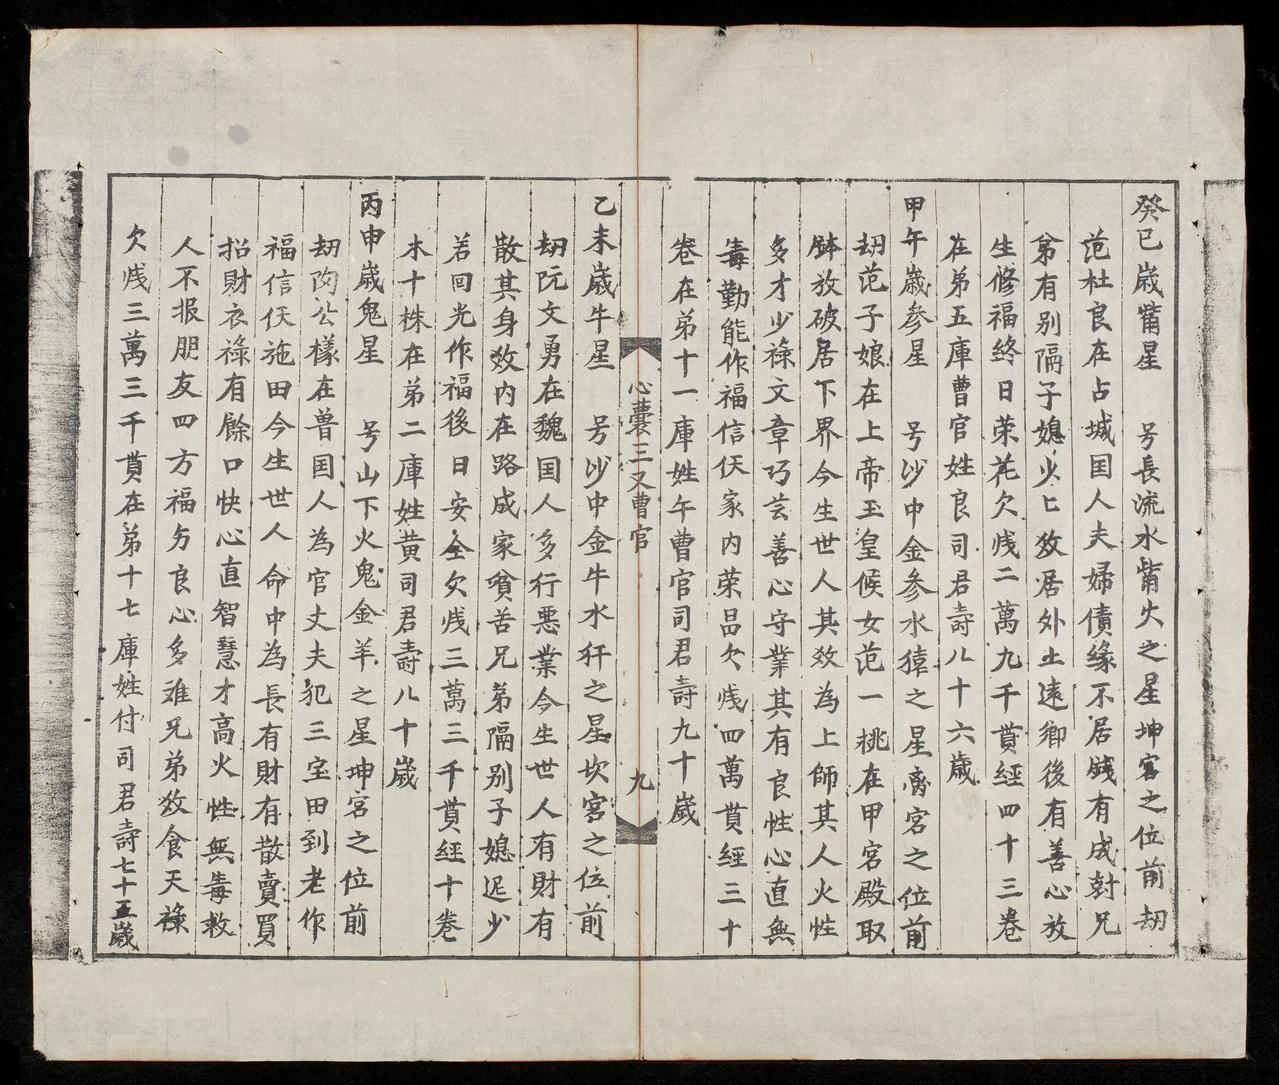 癸巳歲觜星　号長流水觜火之星坤宮之位前刼
范杜良在占城囯人夫婦債緣不居銭有成尅兄
弟有别隔子媳少亡效居外土遠鄉後有善心放
生修福終日荣花欠残二萬九千貫經四十三卷
在弟五庫曹官姓良司君壽八十六歲
甲午歲参星　号沙中金参水猿之星离宮之位前
刼范子娘在上帝玉皇候女范一桃在甲宮殿取
鉢放破居下界今生世人其效為上師其人火性
多才少祿文章巧芸善心守業其有良性心直無
毒勤能作福信仸家内荣品欠残四萬貫經三十
卷在弟十一庫姓午曹官司君壽九十歲
心囊三又曹官　九
乙未歲牛星　号沙中金牛水犴之星坎宮之位前
刼阮文勇在魏囯人多行悪業今生世人有財有
散其身效内在路成家貧苦兄弟隔别子媳迟少
若回光作福後日安全欠残三萬三千貫經十卷
木十株在弟二庫姓黄司君壽八十歲
丙申歲鬼星　号山下火鬼金羊之星坤宮之位前
刼陶公樣在曾囯人為官丈夫犯三宝田到老作
福信仸施田今生世人命中為長有財有散賣買
招財衣祿有餘口快心直智慧才高火性無毒救
人不报朋友四方福分良心多难兄弟效食天祿
欠残三萬三千貫在弟十七庫姓付司君壽七十五歲